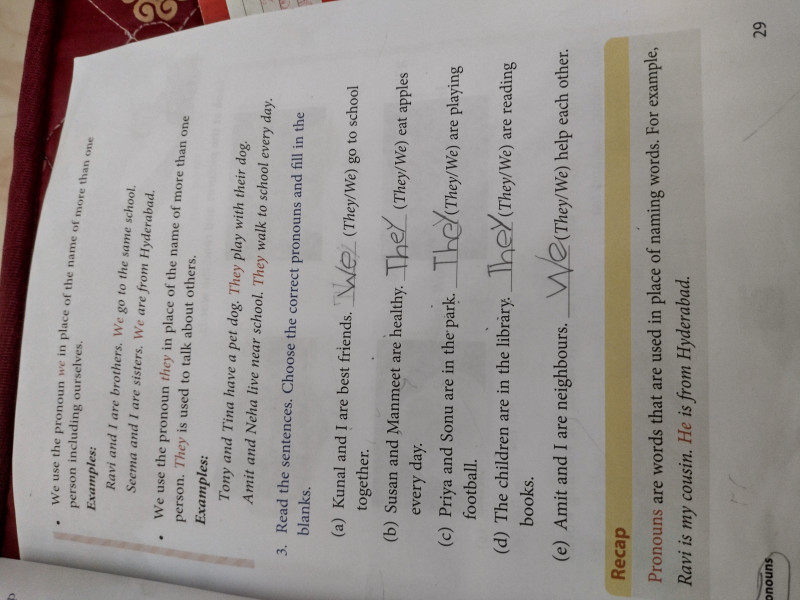 • We use the pronoun we in place of the name of more than one
person including ourselves.
Examples:
Ravi and I are brothers. We go to the same school.
Seema and I are sisters. We are from Hyderabad.
• We use the pronoun they in place of the name of more than one
person. They is used to talk about others.
Examples:
Tony and Tina have a pet dog. They play with their dog.
Amit and Neha live near school. They walk to school every day.
3. Read the sentences. Choose the correct pronouns and fill in the
blanks.
(a) Kunal and I are best friends. We (They/We) go to school
together.
(b) Susan and Manmeet are healthy. They (They/We) eat apples
every day.
(c) Priya and Sonu are in the park. They (They/We) are playing
football.
(d) The children are in the library. They (They/We) are reading
books.
(e) Amit and I are neighbours. We (They/We) help each other.
Recap
Pronouns are words that are used in place of naming words. For example,
Ravi is my cousin. He is from Hyderabad.
onouns
29